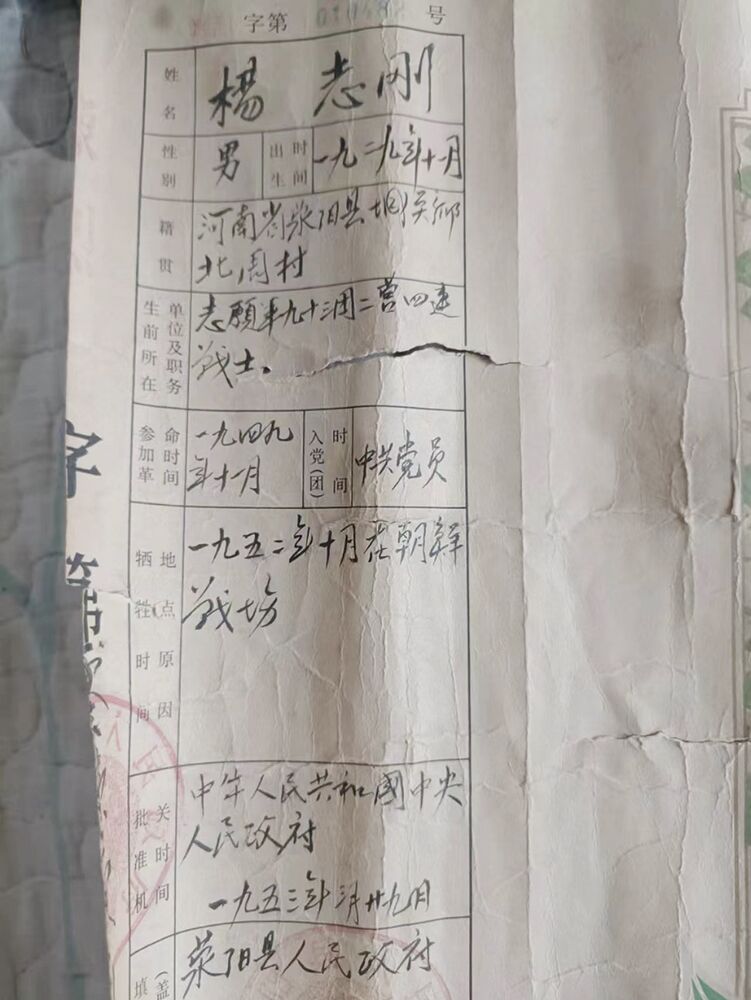 字第 号
姓名 楊志刚
性别 男 出生时间 一九二九年十一月
籍贯 河南省荥阳县
北周村
生前所在单位及职务 志願军九十三团二营四连
战士.
参加革命时间 一九四九
年十一月
入党(团)时间 中共党员
牺牲时间地点原因 一九五二年十月在朝鲜
战场
批准机关时间 中华人民共和國中央
人民政府
一九五三年三月廿九日
填 (盖 荥阳县人民政府
字第